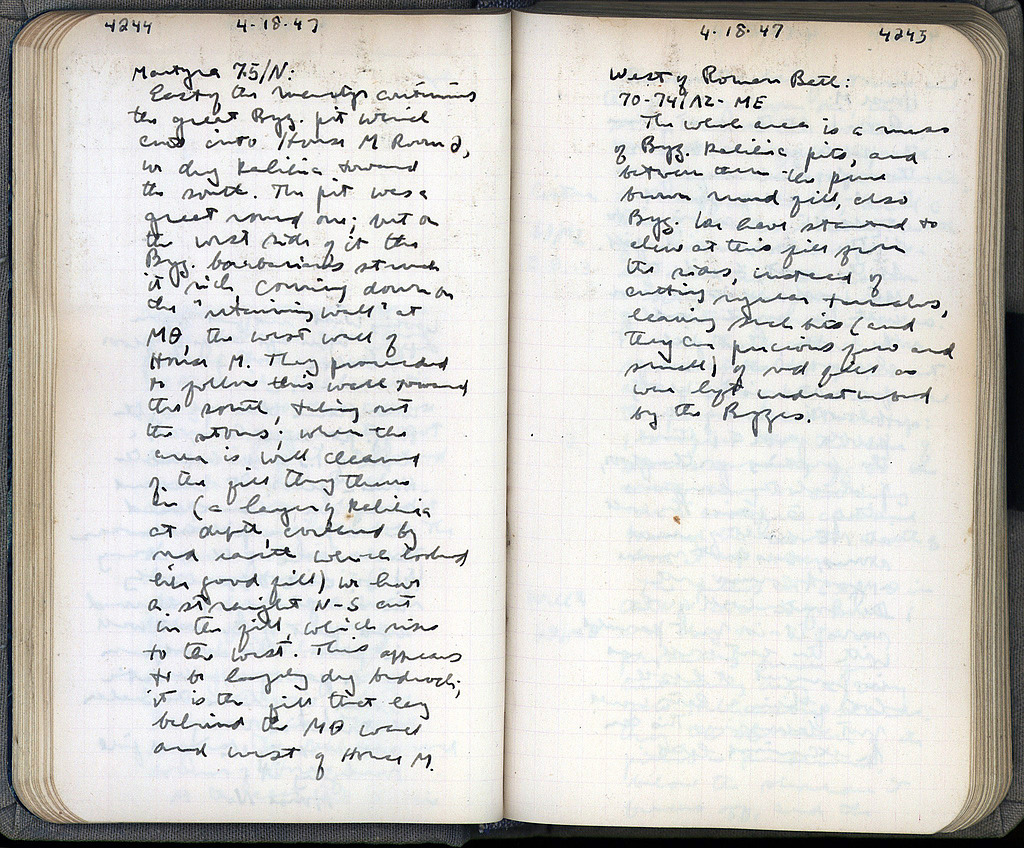 4244 4-18-47
Martyra 75/N:
East of the martyr continues
the great Byz. pit which
cuts into House M Room 2,
we dug kalikia toward
the south. The pit was a
great round one; but on
the west side of it the
Byz. barbarians struck
it rich coming down on
the "retaining wall" at
Mθ, the west wall of
House M. They proceeded
to follow this wall toward
the south, taking out
the stones; when the
area is well cleaned
of the fill they threw
in (a layer of kalikia
at depth, covered by
red earth which looked
like good fill) we have
a straight N-S cut
in the fill, which rises
to the west. This appears
to be largely dug bedrock;
it is the fill that lay
behind the Mθ wall
and west of House M.
4-18-47 4245
West of Roman Bath:
70-74/ΛΣ-ME
The whole area is a mass
of Byz. kalikia pits, and
between them the pure
brown mud fill, also
Byz. We have started to
chew at this fill from
the sides, instead of
cutting regular trenches,
leaving such bits (and
they are precious few and
small) of red fill as
was left undisturbed
by the Byzzes.